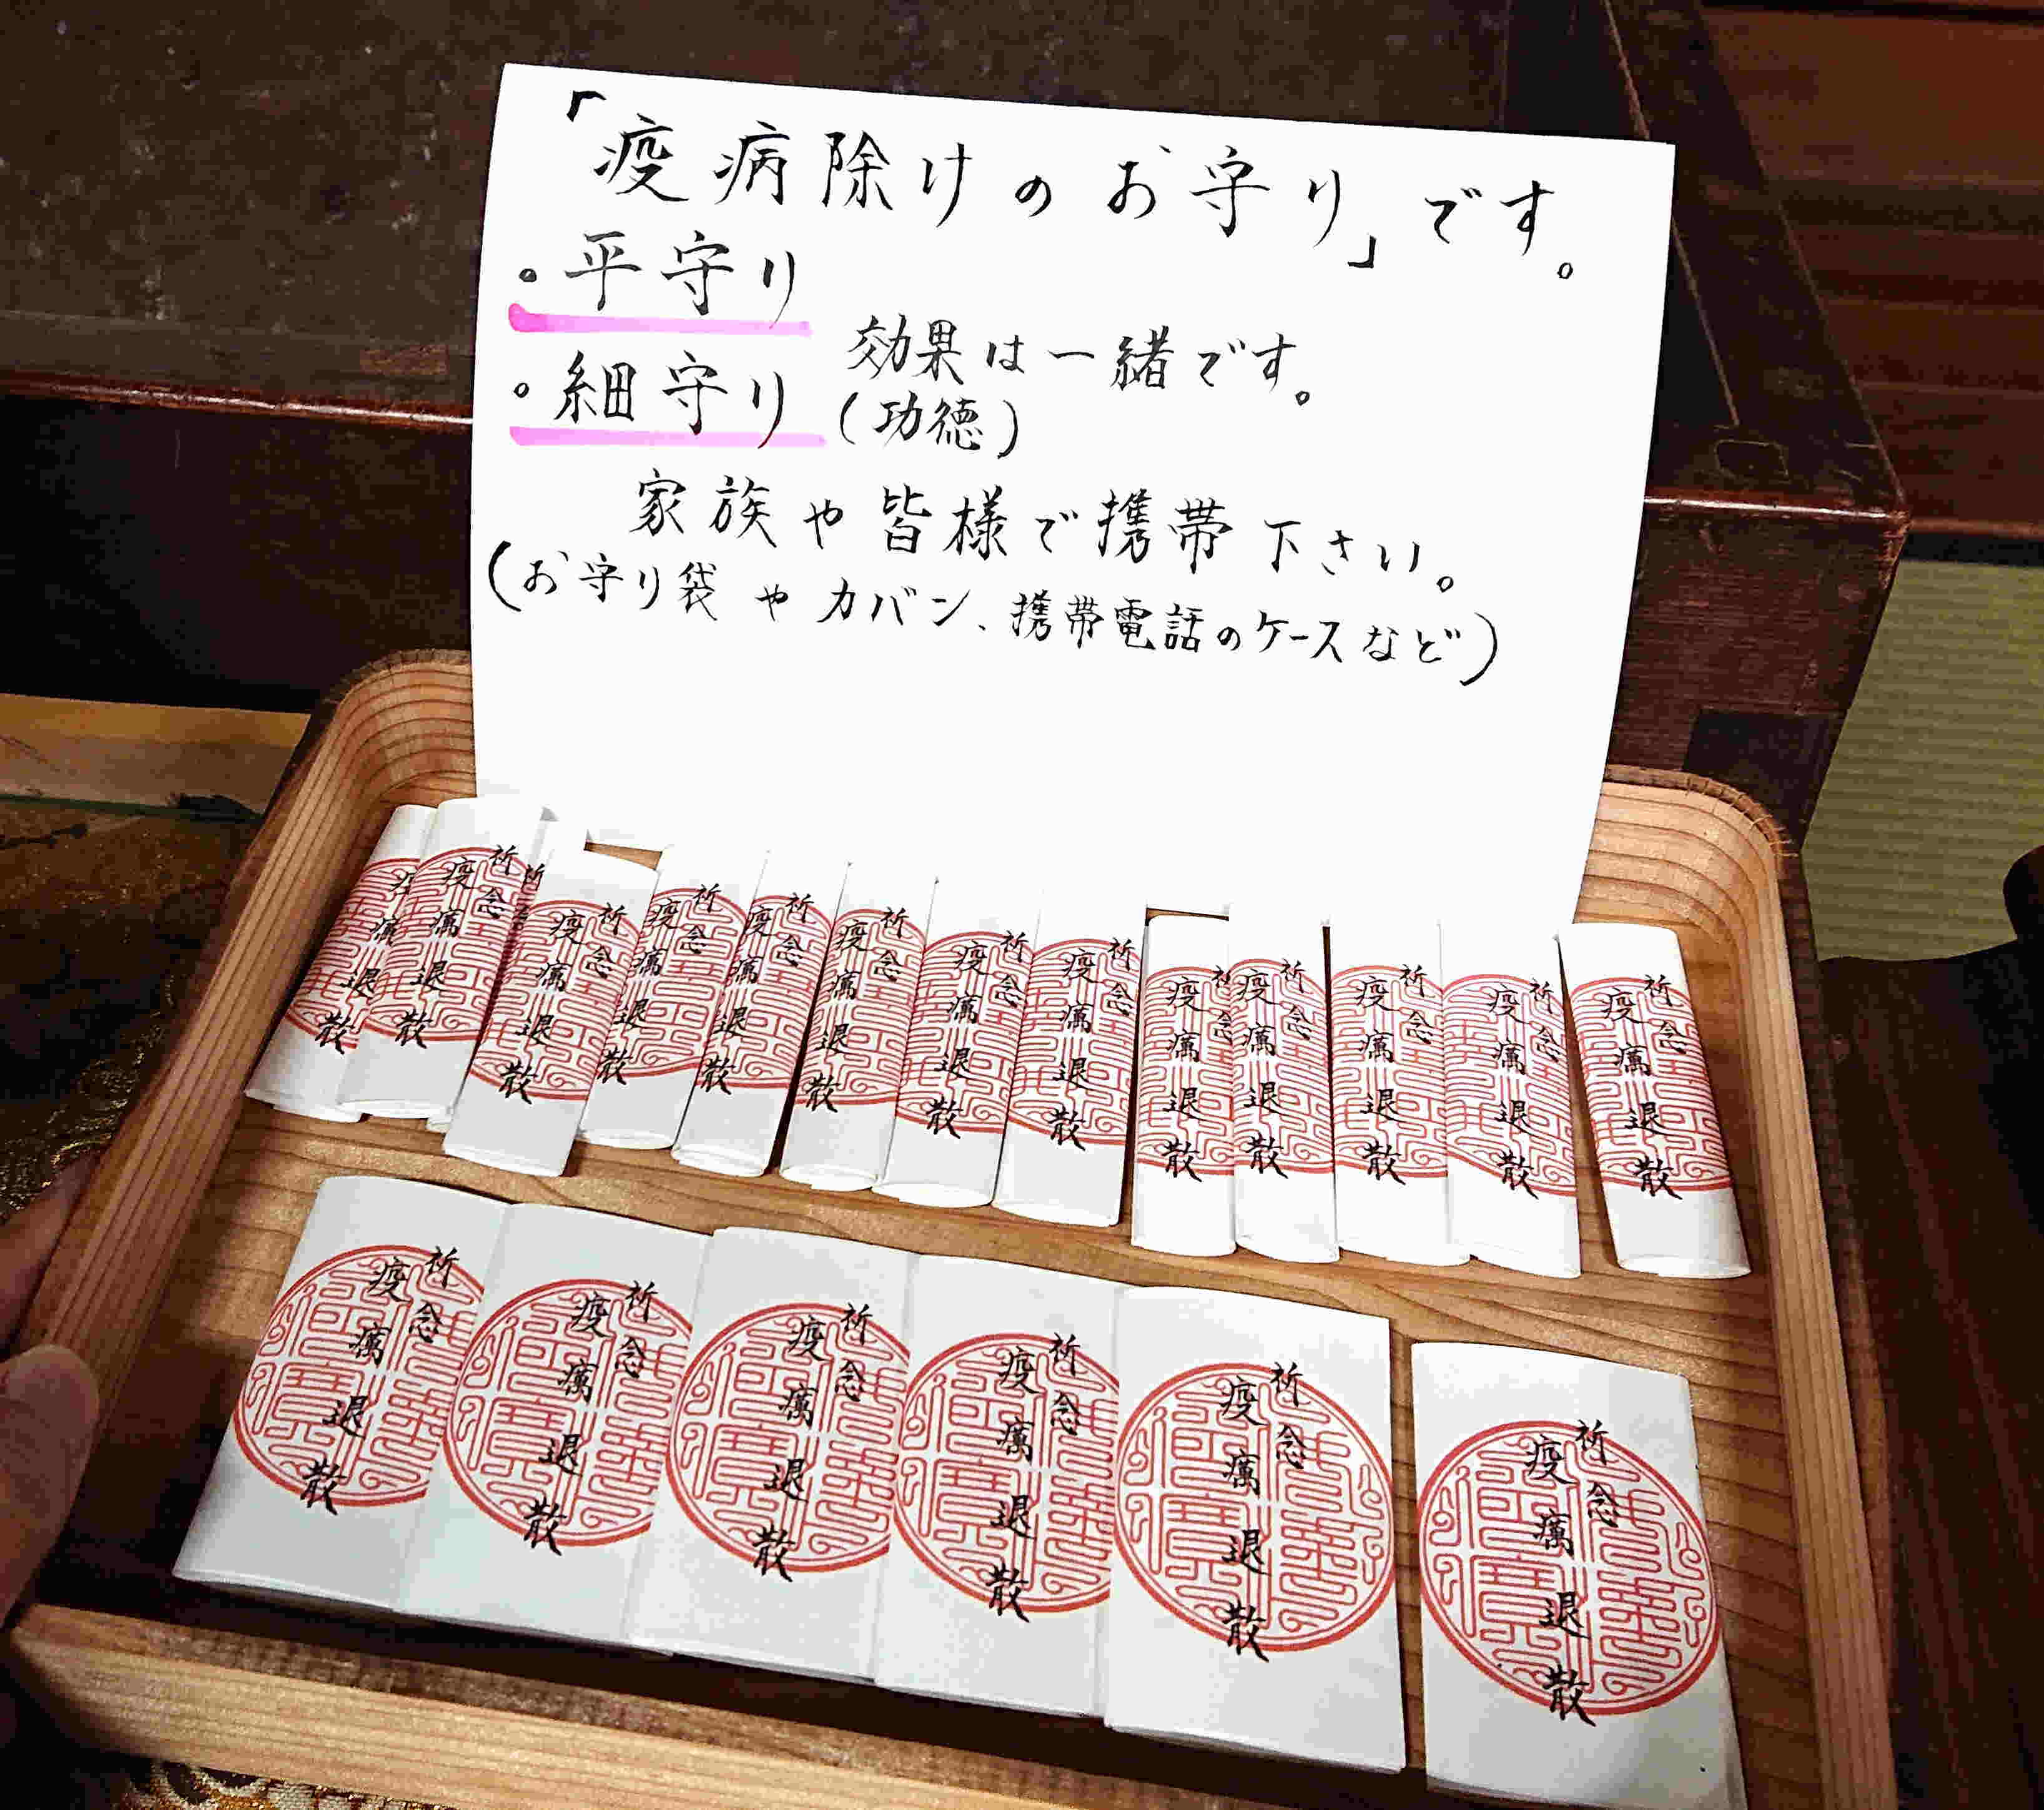 「疫病除けのお守り」です。
・平守り
・細守り
効果は一緒です。
(功徳)
家族や皆様で携帯下さい。
(お守り袋やカバン、携帯電話のケースなど)
祈念
疫癘退散
祈念
疫癘退散
祈念
疫癘退散
祈念
疫癘退散
祈念
疫癘退散
祈念
疫癘退散
祈念
疫癘退散
祈念
疫癘退散
祈念
疫癘退散
祈念
疫癘退散
祈念
疫癘退散
祈念
疫癘退散
祈念
疫癘退散
祈念
疫癘退散
祈念
疫癘退散
祈念
疫癘退散
祈念
疫癘退散
祈念
疫癘退散